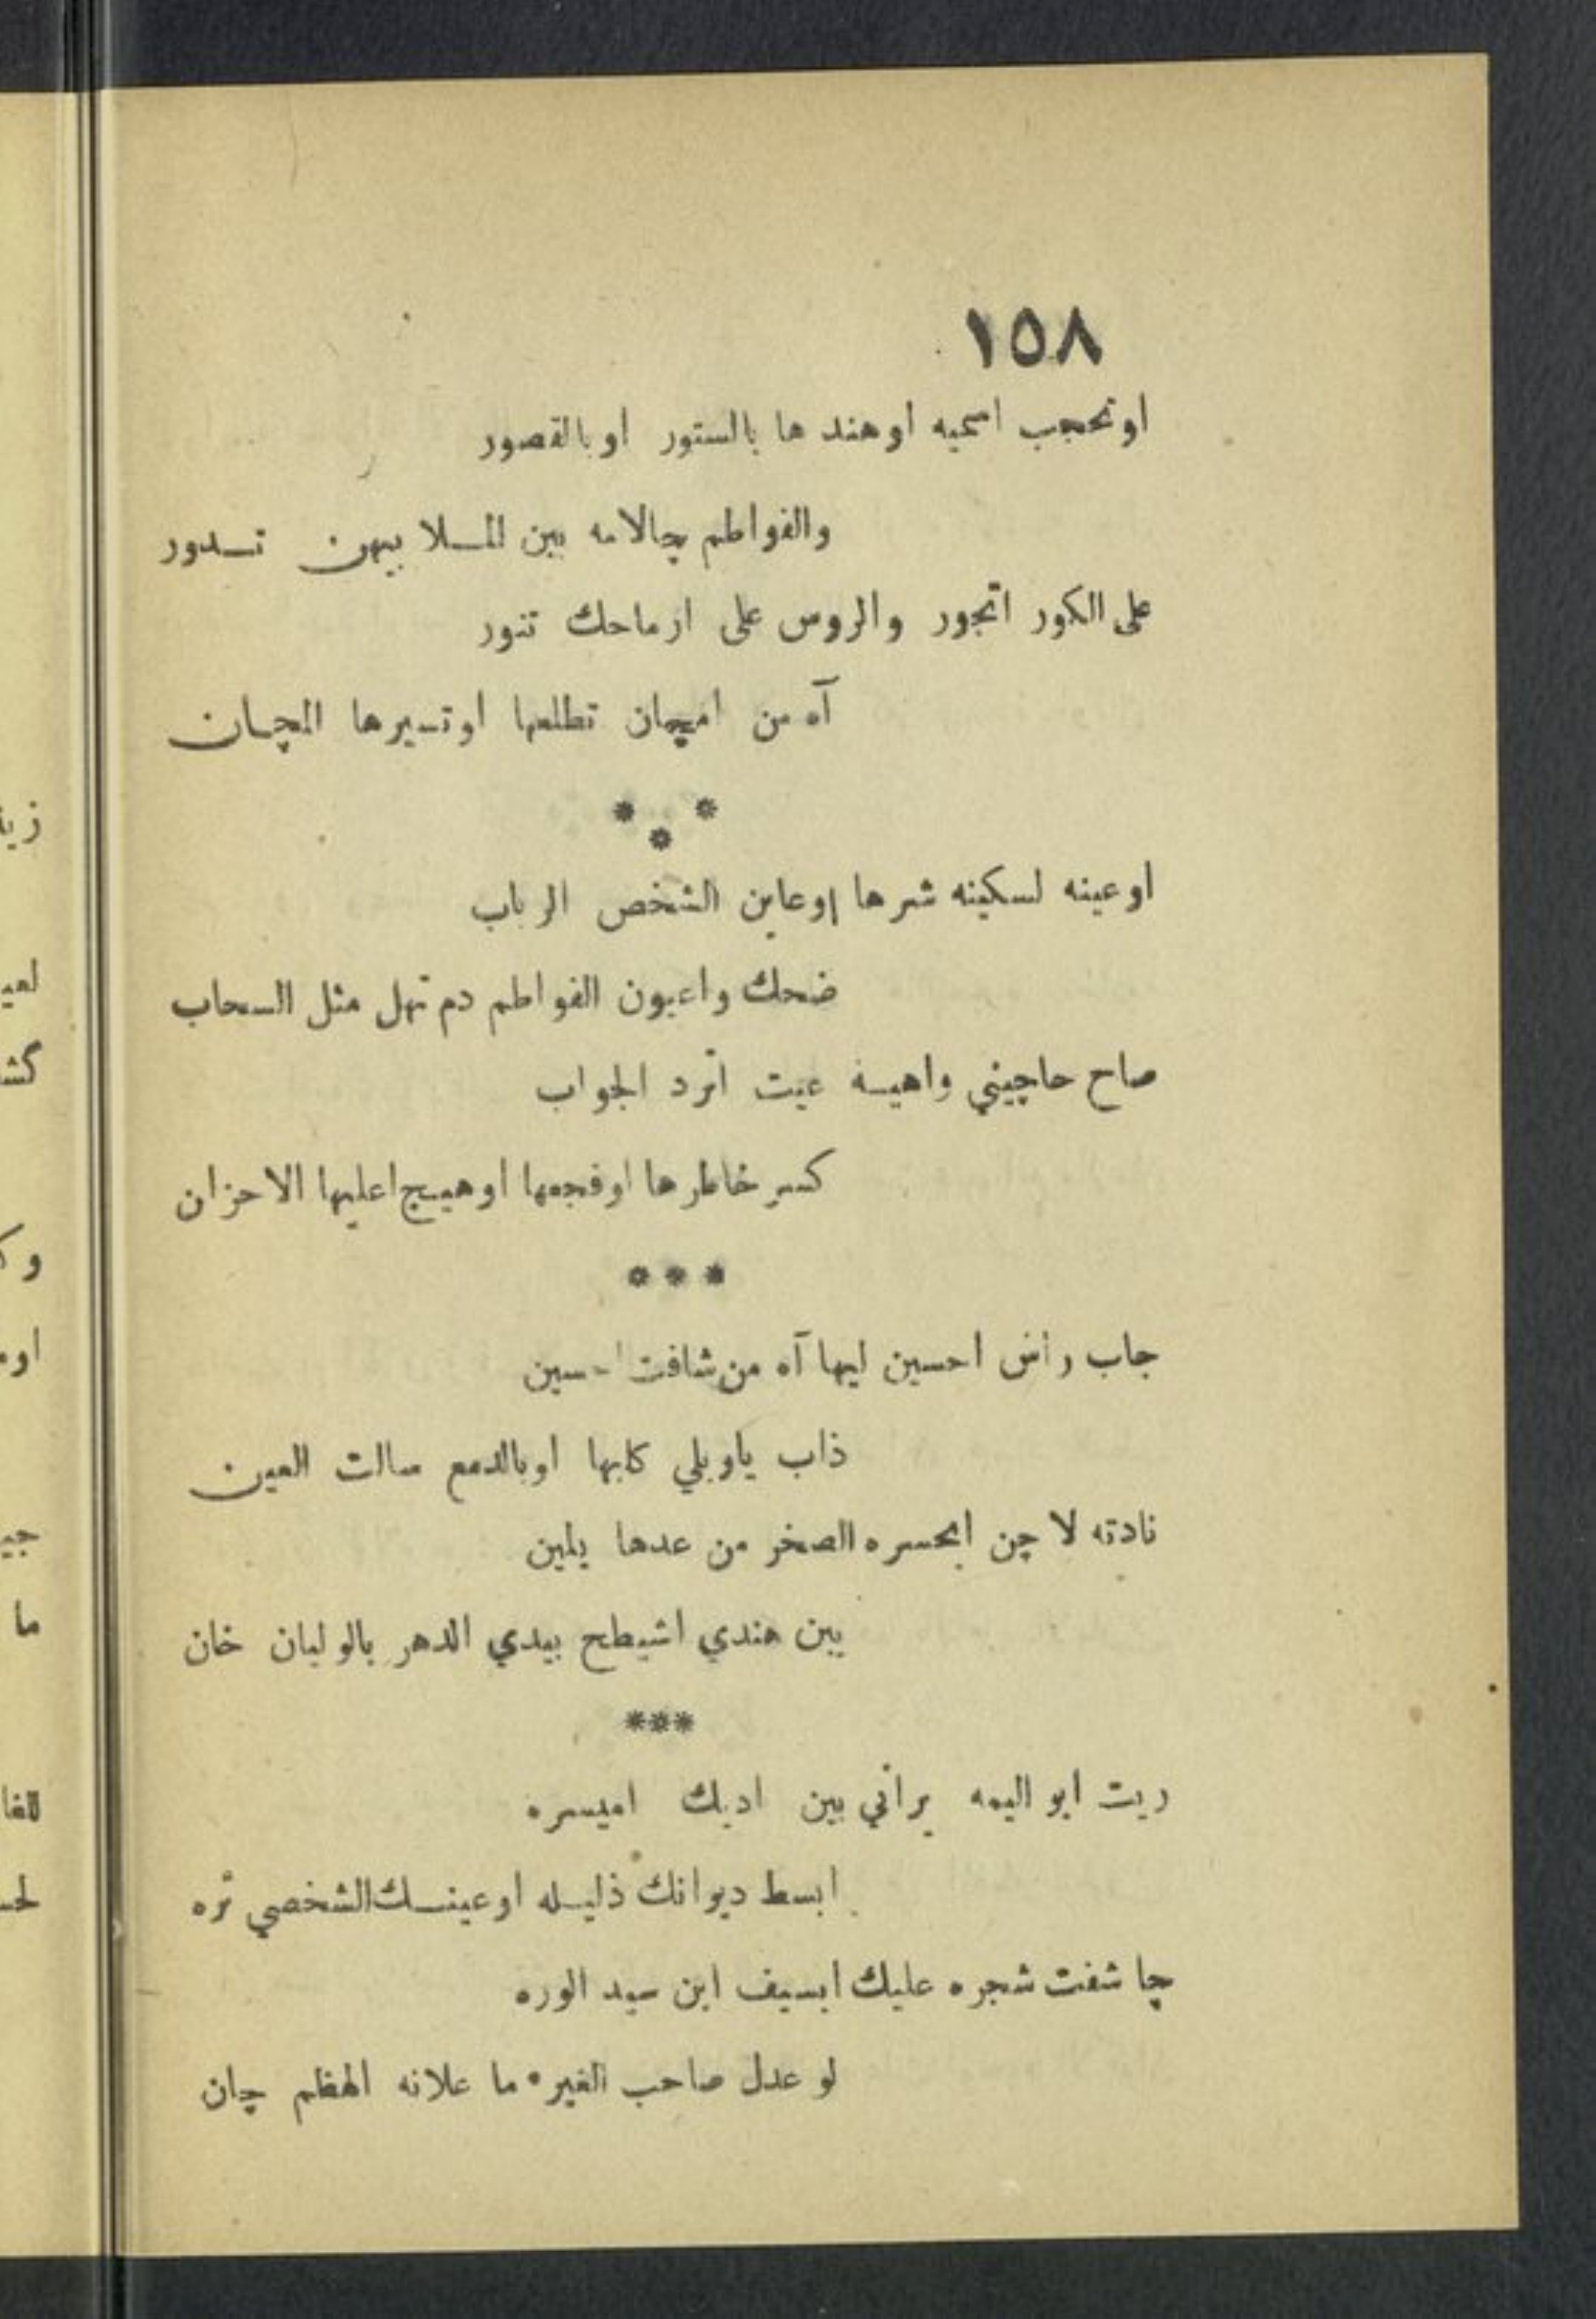 ١٥٨
او تحجب اسميه او هند ها بالستور او بالقصور
والفواطم چالامه بين المـلا بيهن تـدور
على الكور اتجور والروس على ارماحك تنور
آه من امچان تطلعها او تـيرها المچان
* * *
او عينه لسكينه شرها اوعاين الشخص الرباب
ضحك واعيون الفواطم دم تهل مثل السحاب
صاح حاچيني واهيـه عيت اترد الجواب
كسر خاطرها او فجمها او هيـج اعليها الاحزان
* * *
جاب راس احسين ليها آه من شافت احسين
ذاب ياويلي كلبها او بالدمع سالت العين
نادته لا چن ابحسره الصخر من عدها يلين
يبن هندي اشيطح بيدي الدهر بالوليان خان
***
ريت ابو اليمه يراني بين اديك اميسره
ابسط ديوانك ذليـله او عينـك الشخصي تره
چا شفت شجره عليك ابسيف ابن سيد الوره
لو عدل صاحب الغيره ما علانه الهظم چان
زيـ
لعيـ
گشـ
وكـ
اومـ
جيـ
ما
للغا
لحـ